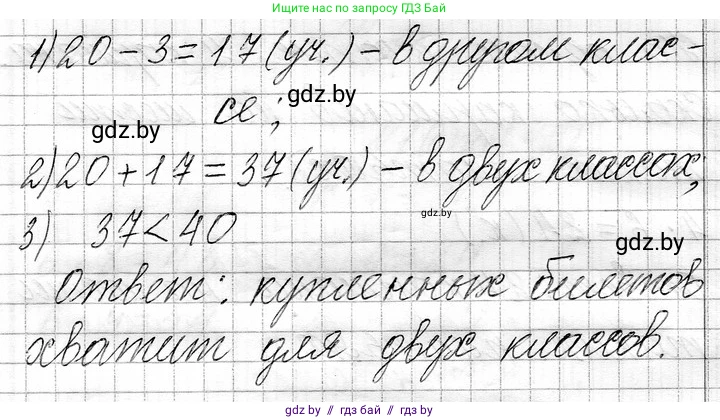 Ищите нас по запросу ГДЗ Бай
1) 20 - 3 = 17 (уч.) - в другом клас-
се;
gdz.by
gdz.by
2) 20 + 17 = 37 (уч.) - в двух классах;
gdz.by
3) 37 < 40
gdz.by
Ответ: купленных билетов
хватит для двух классов.
gdz.by // гдз бай // gdz.by